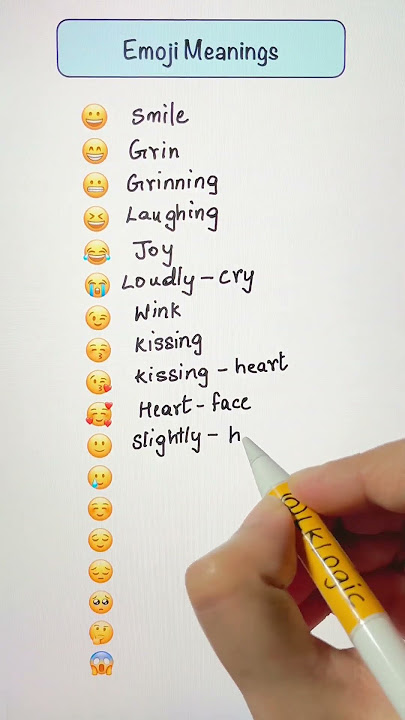 Emoji Meanings
Smile
Grin
Grinning
Laughing
Joy
Loudly - cry
Wink
Kissing
Kissing - heart
Heart - face
Slightly - h